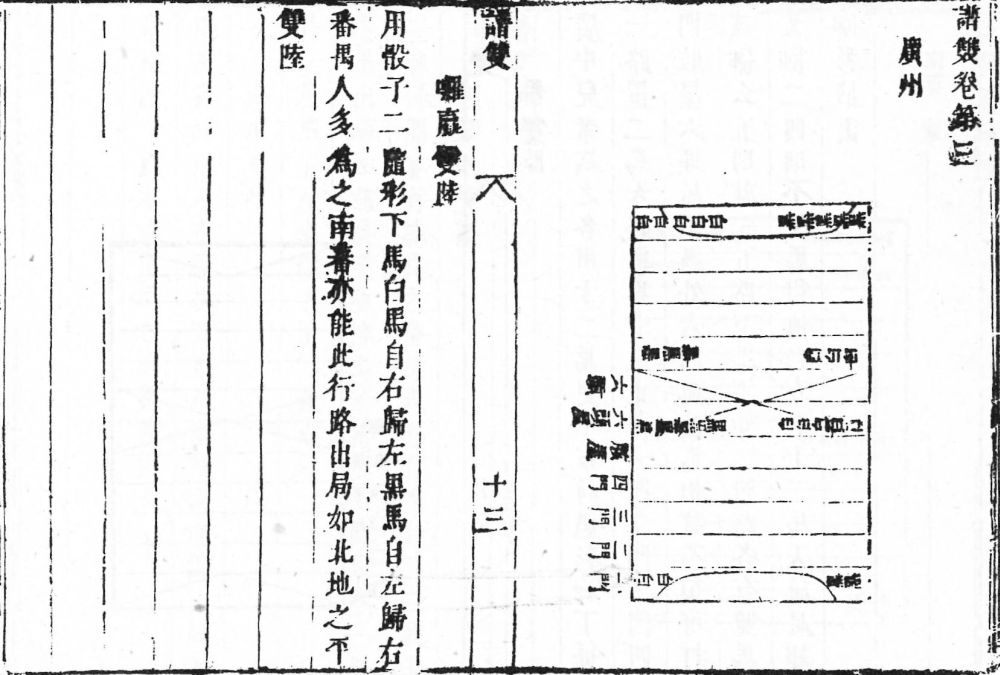 譜雙卷第三
廣州
白白白白白
黑黑黑黑黑
四門
三門
二門
一門
譜雙
十三
囉嬴雙陸
用骰子二隨彩下馬白馬自右歸左黒馬自左歸右
番禺人多為之南蕃亦能此行路出局如北地之平
雙陸